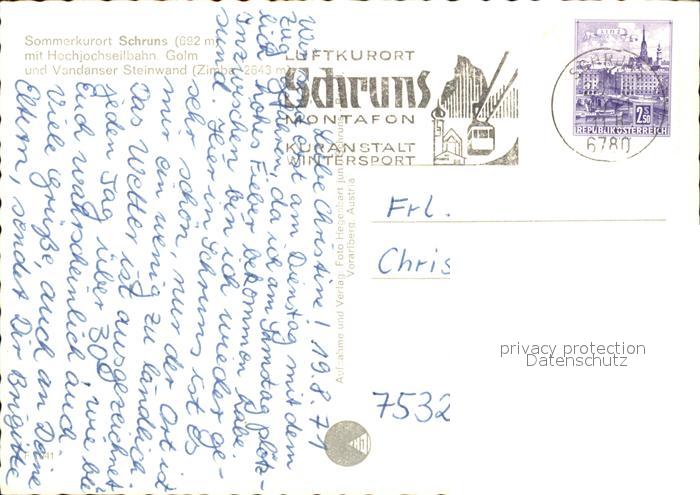 Sommerkurort Schruns (692 m)
mit Hochjochseilbahn. Golm
und Vandanser Steinwand (Zimba 2643 m)
LUFTKURORT
Schruns
MONTAFON
KURANSTALT
WINTERSPORT
SCHRUNS
6780
LINZ
2.50
REPUBLIK ÖSTERREICH
Liebe Christine! 19.8.71
Wir erst am Dienstag mit dem
Zug gefahren, da ich am Samstag plötz-
lich hohes Fieber bekommen habe.
Inzwischen bin ich wieder ge-
sund. Hier in Schruns ist es
sehr schön, nur der Ort ist
mir ein wenig zu ländlich.
Das Wetter ist ausgezeichnet
jeden Tag über 30°, wie bei
Euch wahrscheinlich auch.
Viele Grüße, auch an Deine
Eltern, sendet Dir Brigitte
Aufnahme und Verlag: Foto Hegenbart jun. Schruns
Vorarlberg, Austria
Frl.
Chris
7532
privacy protection
Datenschutz
41